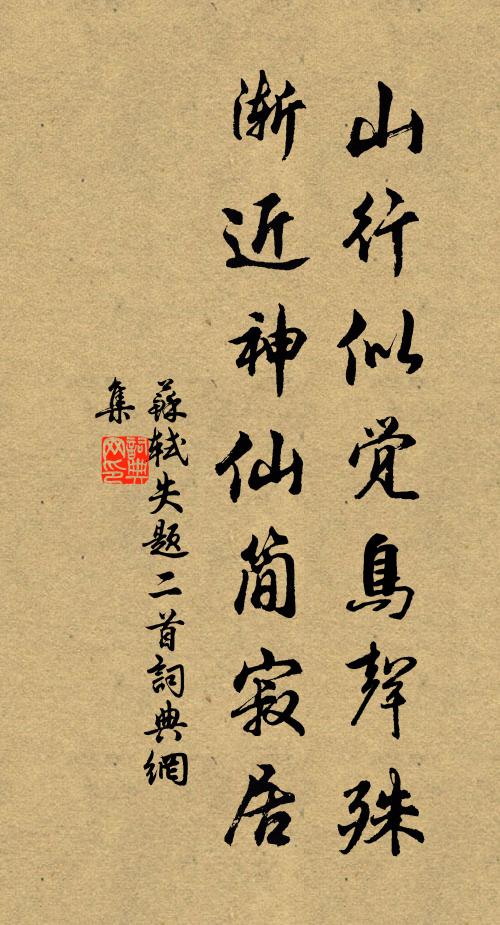 山行似觉鳥聲殊
渐近神仙简寂居
蘇軾失题二首詞典網
集
詞典
网印